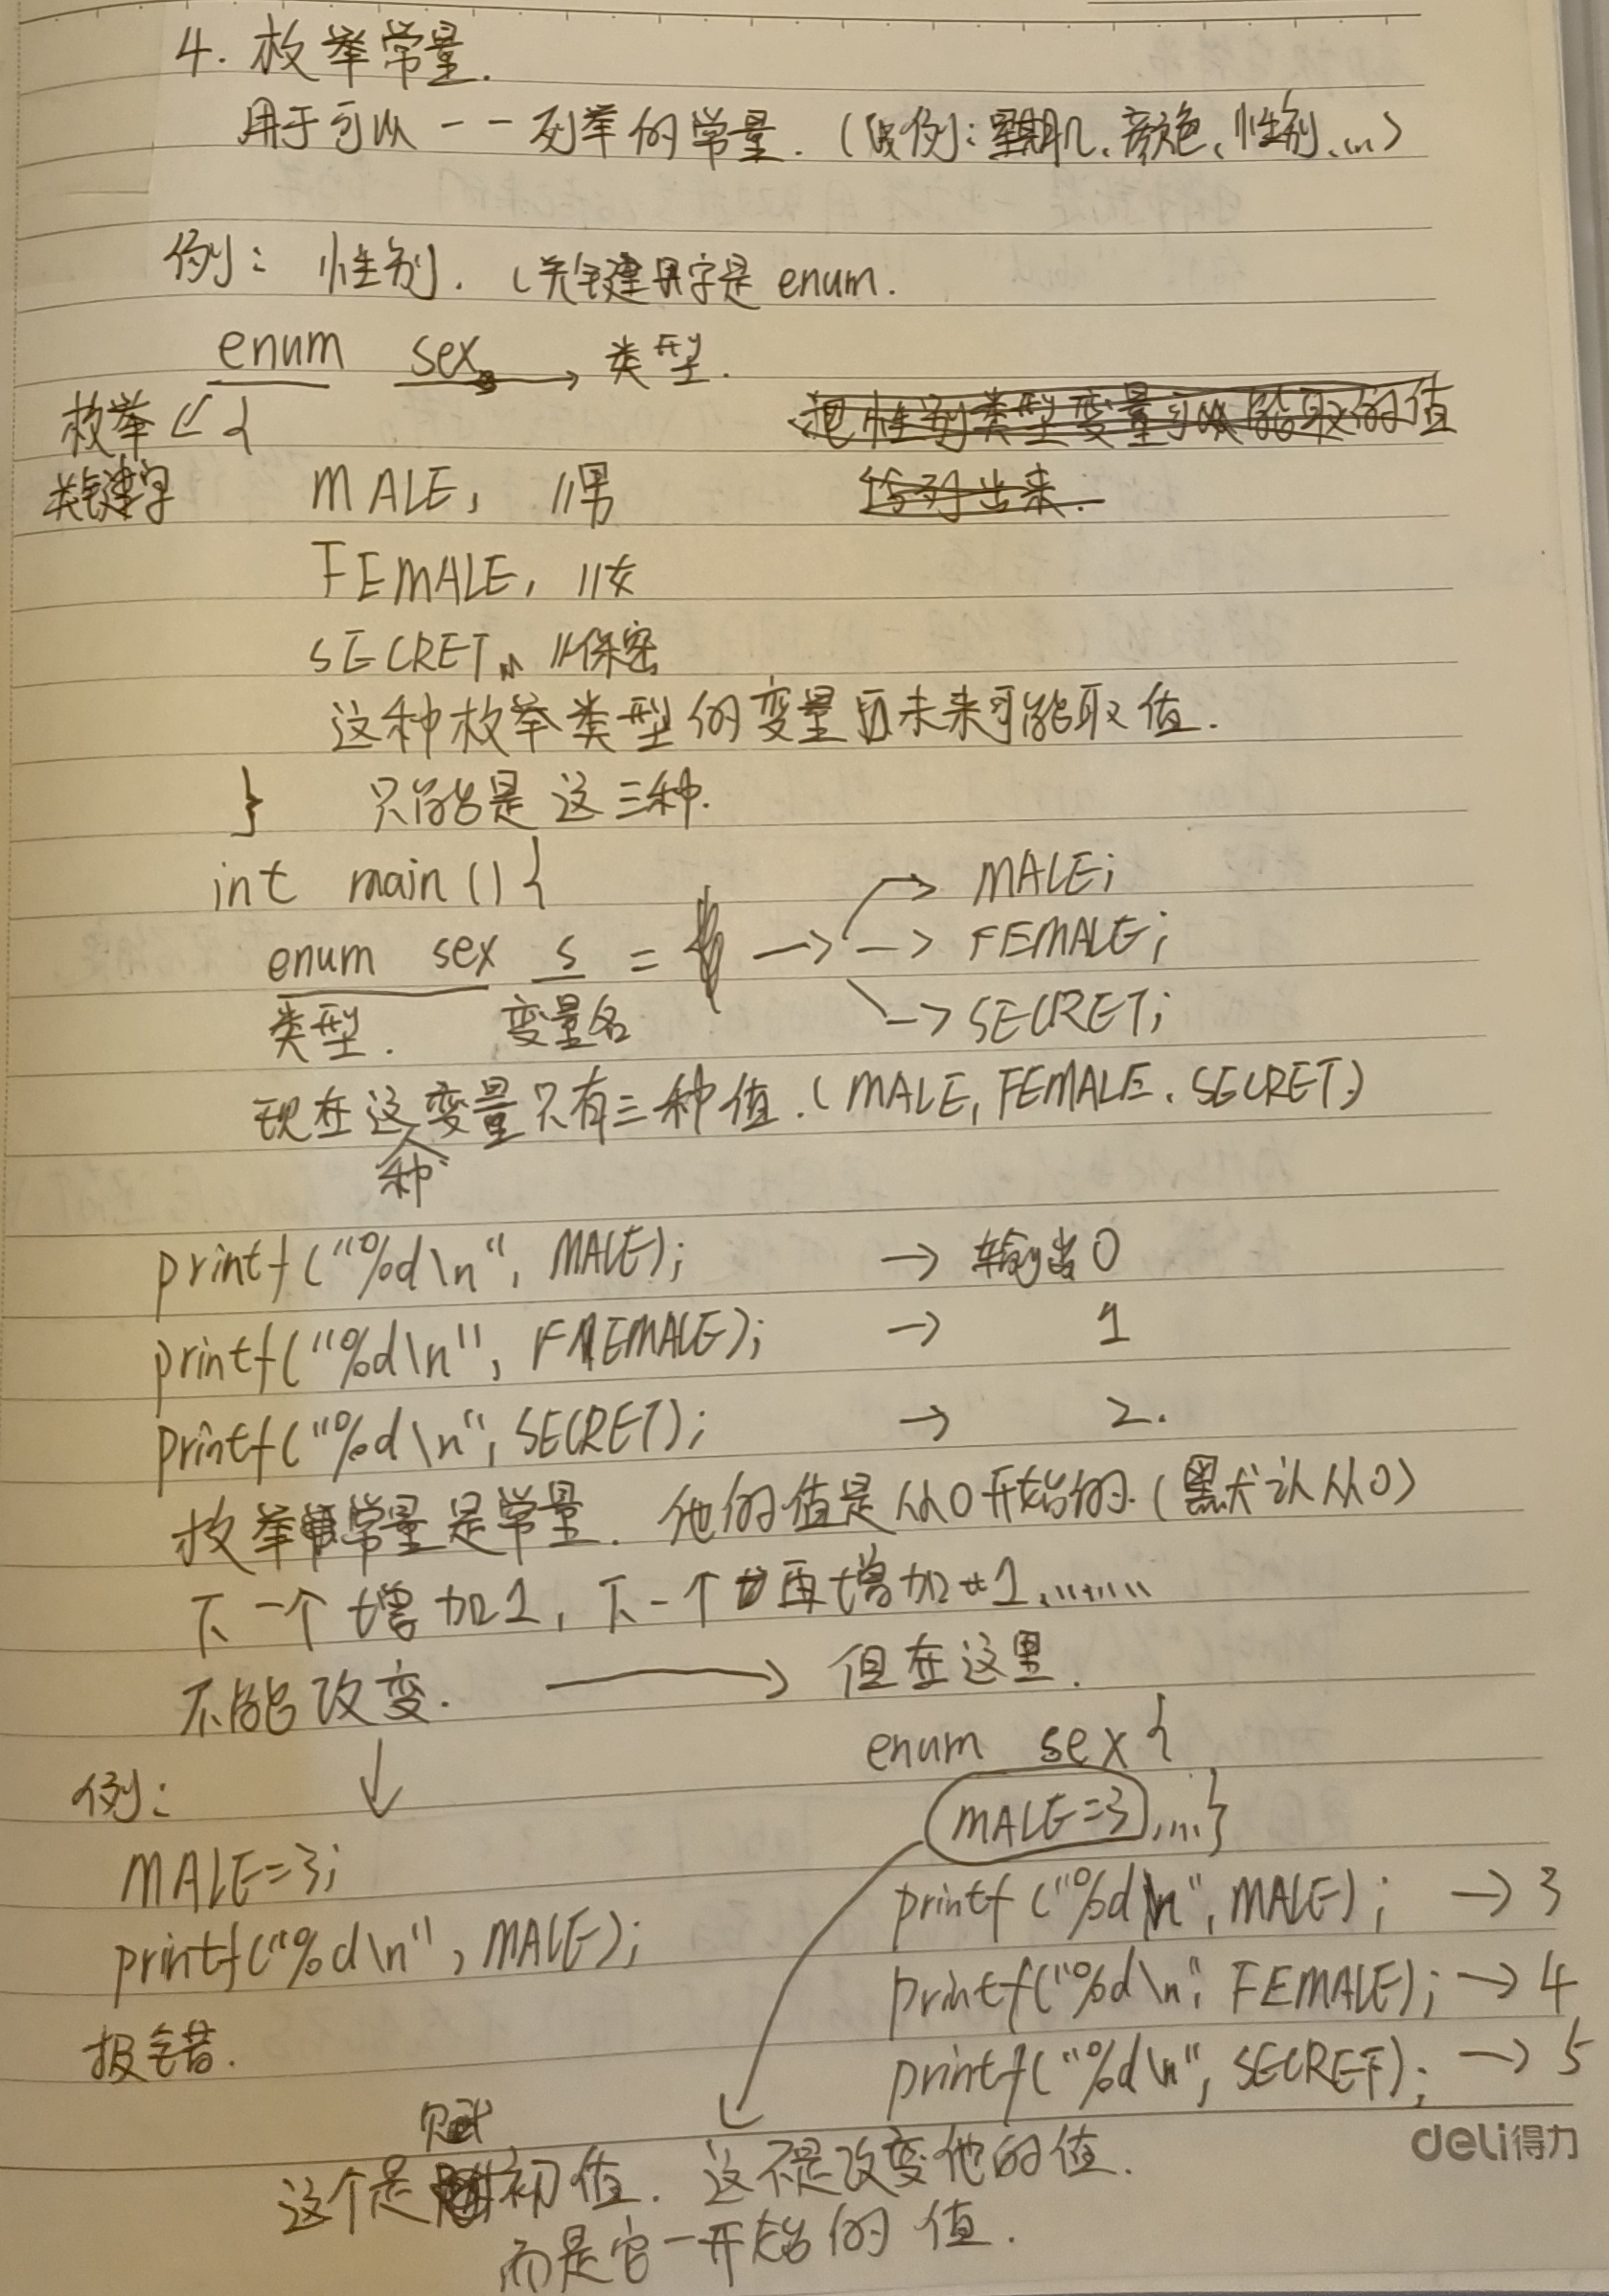 4. 枚举常量.
用于可以一一列举的常量. (例: 星期几、颜色、性别、...)
例: 性别. (关键字是 enum.
enum sex → 类型.
枚举 {
关键字
MALE, //男
FEMALE, //女
SECRET, //保密
这种枚举类型的变量未来可能取值.
} 只能是这三种.
int main () {
enum sex s = → → MALE;
→ FEMALE;
→ SECRET;
类型. 变量名
现在这种变量只有三种值. (MALE, FEMALE、SECRET)
printf ("%d\n", MALE); → 输出 0
printf("%d\n", FEMALE); → 1
printf("%d\n", SECRET); → 2.
枚举常量是常量. 他的值是从0开始的. (默认从0)
下一个增加1, 下一个再增加1........
不能改变. → 但在这里.
enum sex {
MALE=3,...}
例:
MALE=3;
printf("%d\n", MALE);
报错.
printf ("%d\n", MALE); → 3
printf("%d\n", FEMALE); → 4
printf("%d\n", SECRET); → 5
deli得力
这个是赋初值. 这不是改变他的值.
而是它一开始的值.